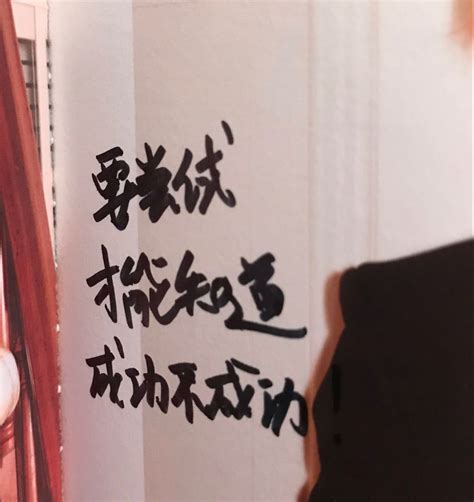 要尝试
才能知道
成功不成功!